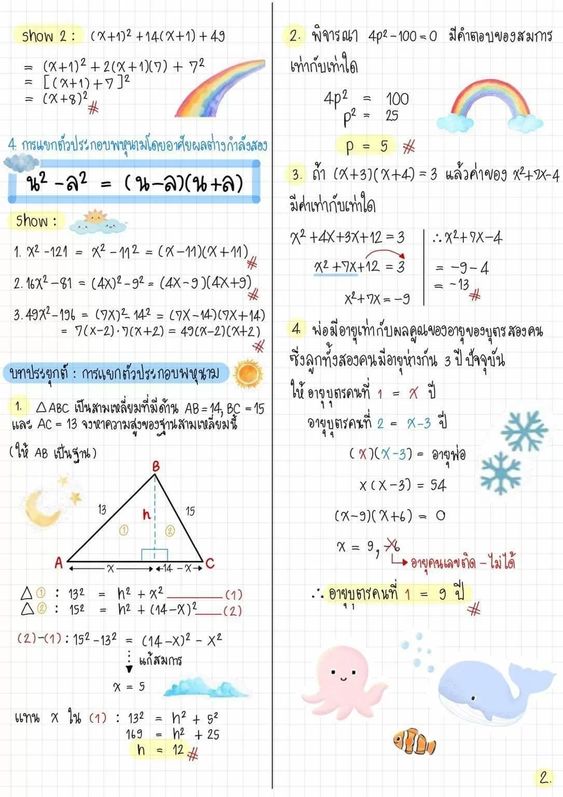 show 2 : (x+1)² +14(x+1) + 49
= (x+1)² + 2(x+1)(7) + 7²
= [(x+1) + 7]²
= (x+8)² #
4. การแยกตัวประกอบพหุนามโดยอาศัยผลต่างกำลังสอง
น² - ล² = (น-ล)(น+ล)
show :
1. x² -121 = x² - 11² = (x-11)(x+11) #
2. 16x² - 81 = (4x)² - 9² = (4x-9)(4x+9) #
3. 49x² - 196 = (7x)² 14² = (7x-14)(7x+14)
= 7(x-2)·7(x+2) = 49(x-2)(x+2) #
บทประยุกต์ : การแยกตัวประกอบพหุนาม
1. △ABC เป็นสามเหลี่ยมที่มีด้าน AB = 14, BC = 15
และ AC = 13 จงหาความสูงของฐานสามเหลี่ยมนี้
(ให้ AB เป็นฐาน)
B
13 h 15
① ②
A x 14-x C
△① : 13² = h² + x² (1)
△② : 15² = h² + (14-x)² (2)
(2)-(1) : 15² - 13² = (14-x)² - x²
แก้สมการ
x = 5
แทน x ใน (1) : 13² = h² + 5²
169 = h² + 25
h = 12 #
2. พิจารณา 4p² - 100 = 0 มีคำตอบของสมการ
เท่ากับเท่าใด
4p² = 100
p² = 25
p = 5 #
3. ถ้า (x+3)(x+4) = 3 แล้วค่าของ x²+7x-4
มีค่าเท่ากับเท่าใด
x² +4x+3x+12 = 3
x² +7x+12 = 3
x²+7x = -9
∴ x²+7x-4
= -9-4
= -13 #
4. พ่อมีอายุเท่ากับผลคูณของอายุของบุตรสองคน
ซึ่งลูกทั้งสองคนมีอายุห่างกัน 3 ปี ปัจจุบัน
ให้ อายุบุตรคนที่ 1 = x ปี
อายุบุตรคนที่ 2 = x-3 ปี
(x)(x-3) = อายุพ่อ
x(x-3) = 54
(x-9)(x+6) = 0
x = 9, -6
อายุคนเลขติด - ไม่ได้
∴ อายุบุตรคนที่ 1 = 9 ปี #
2.